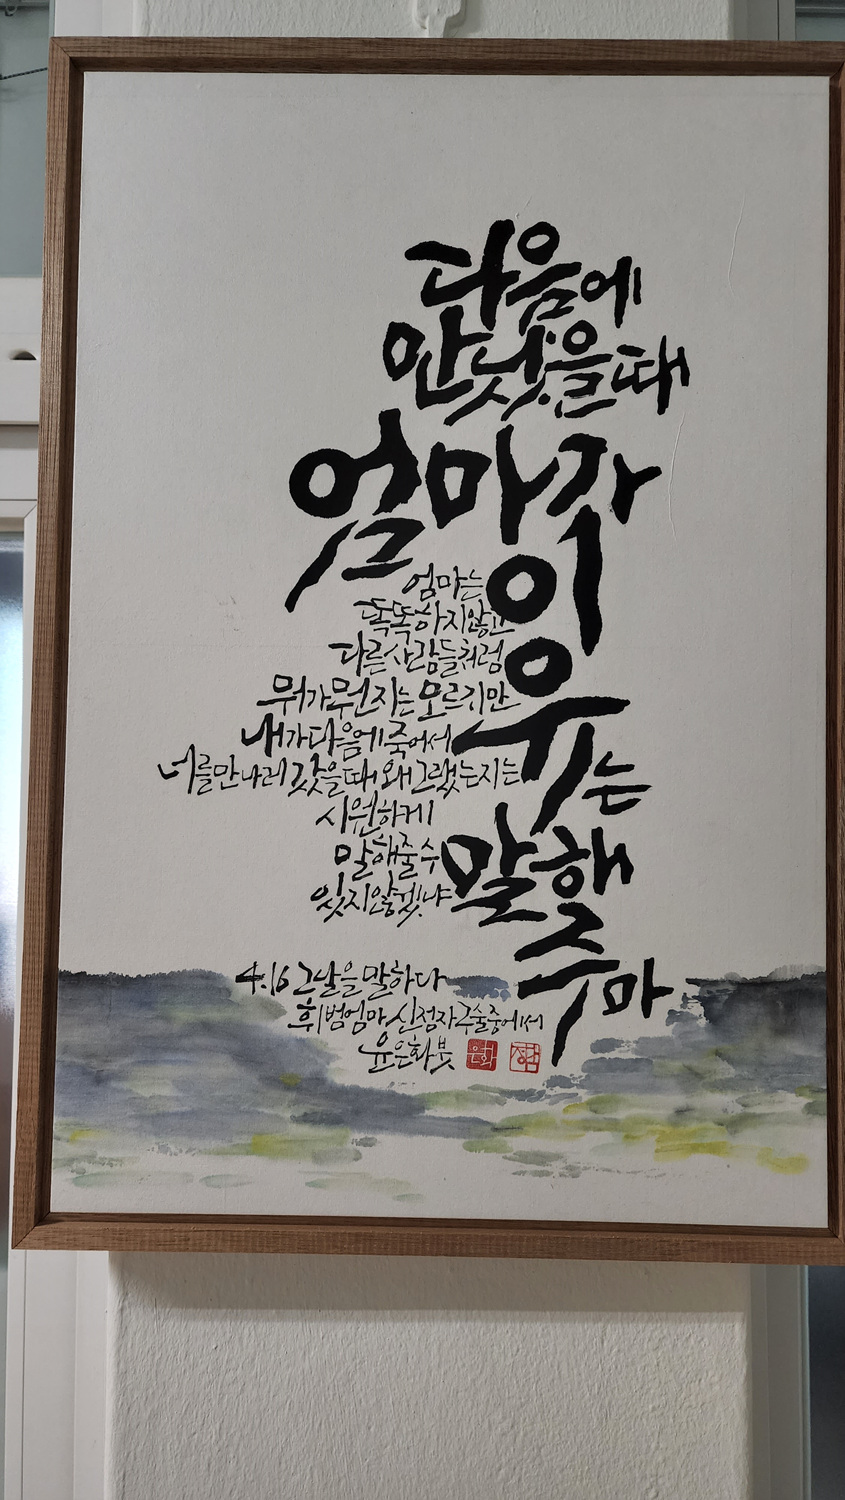 다음에
만났을 때
엄마가
이
유는
말해
주마
엄마는
똑똑하지 않고
다른 사람들처럼
뭐가 뭔지는 모르지만
내가 다음에 죽어서
너를 만나러 갔을 때 왜 그랬는지는
시원하게
말해줄 수
있지 않겠냐
4.16 그날을 말하다
휘범엄마 신점자 구술 중에서
윤은화 붓
은화